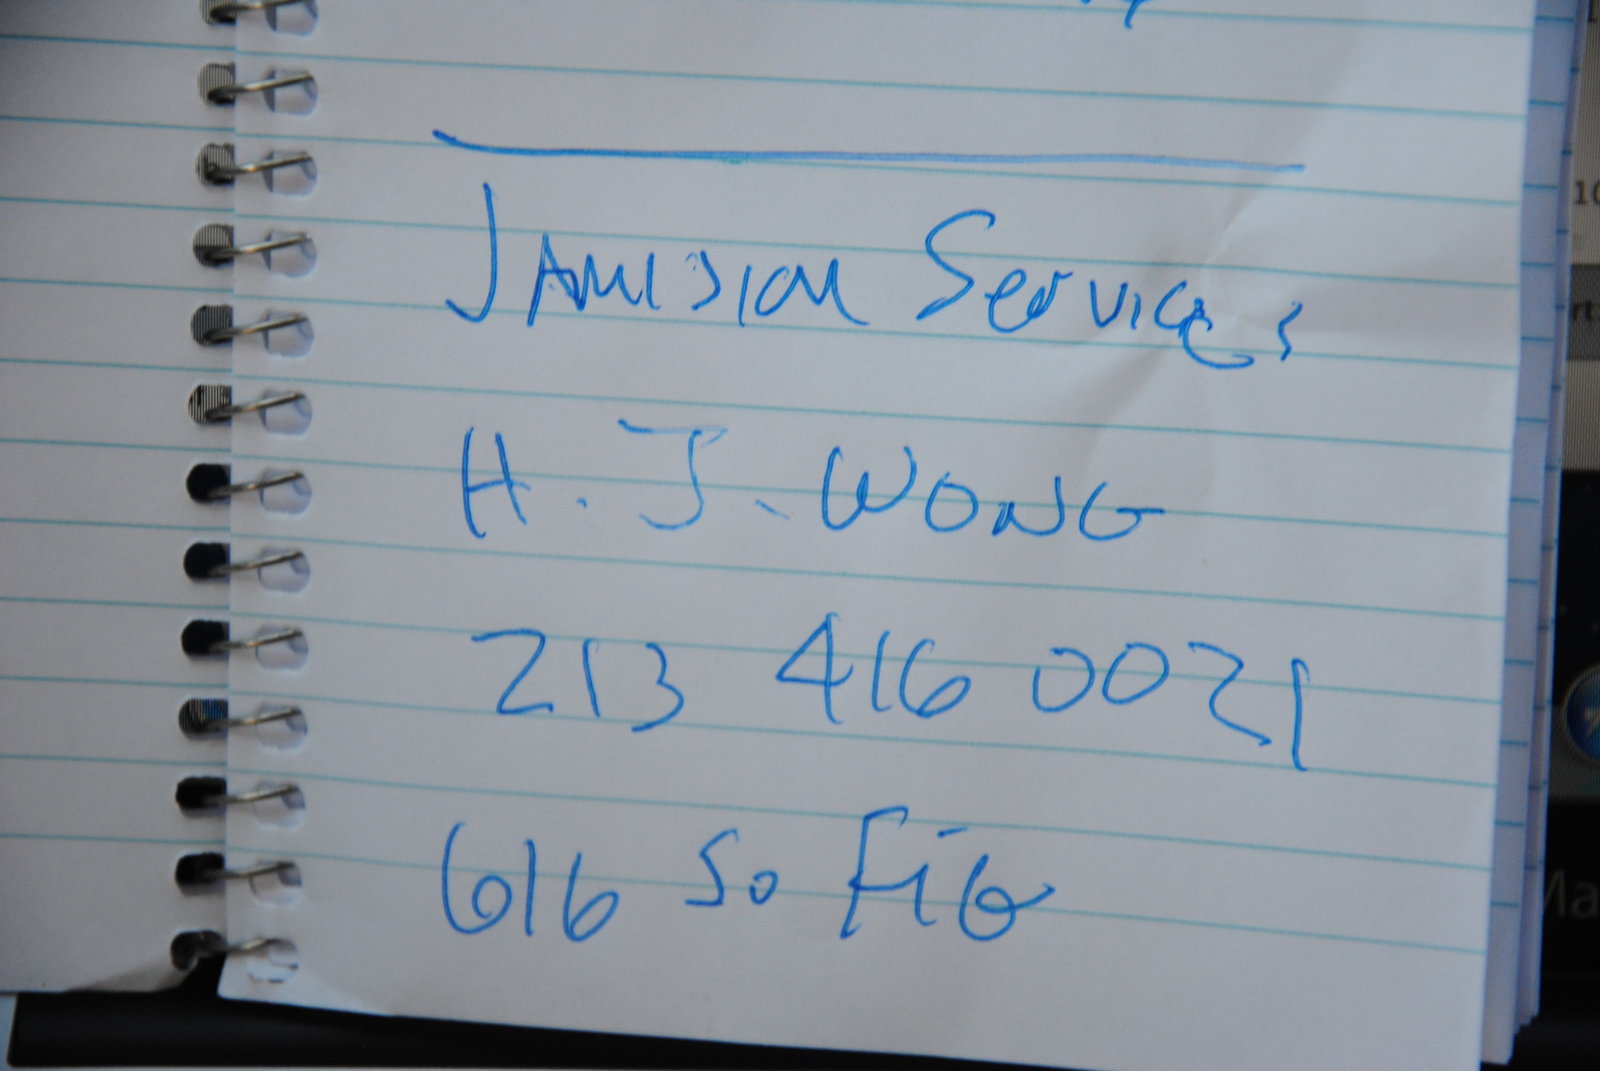 JAMISION Services
H. J. WONG
213 416 0021
616 So FiG
10
Ma